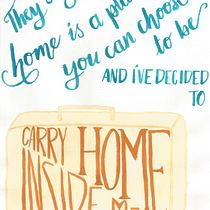 They
home is a
you can choose
to be
AND I'VE DECIDED
TO
CARRY HOME
INSIDE